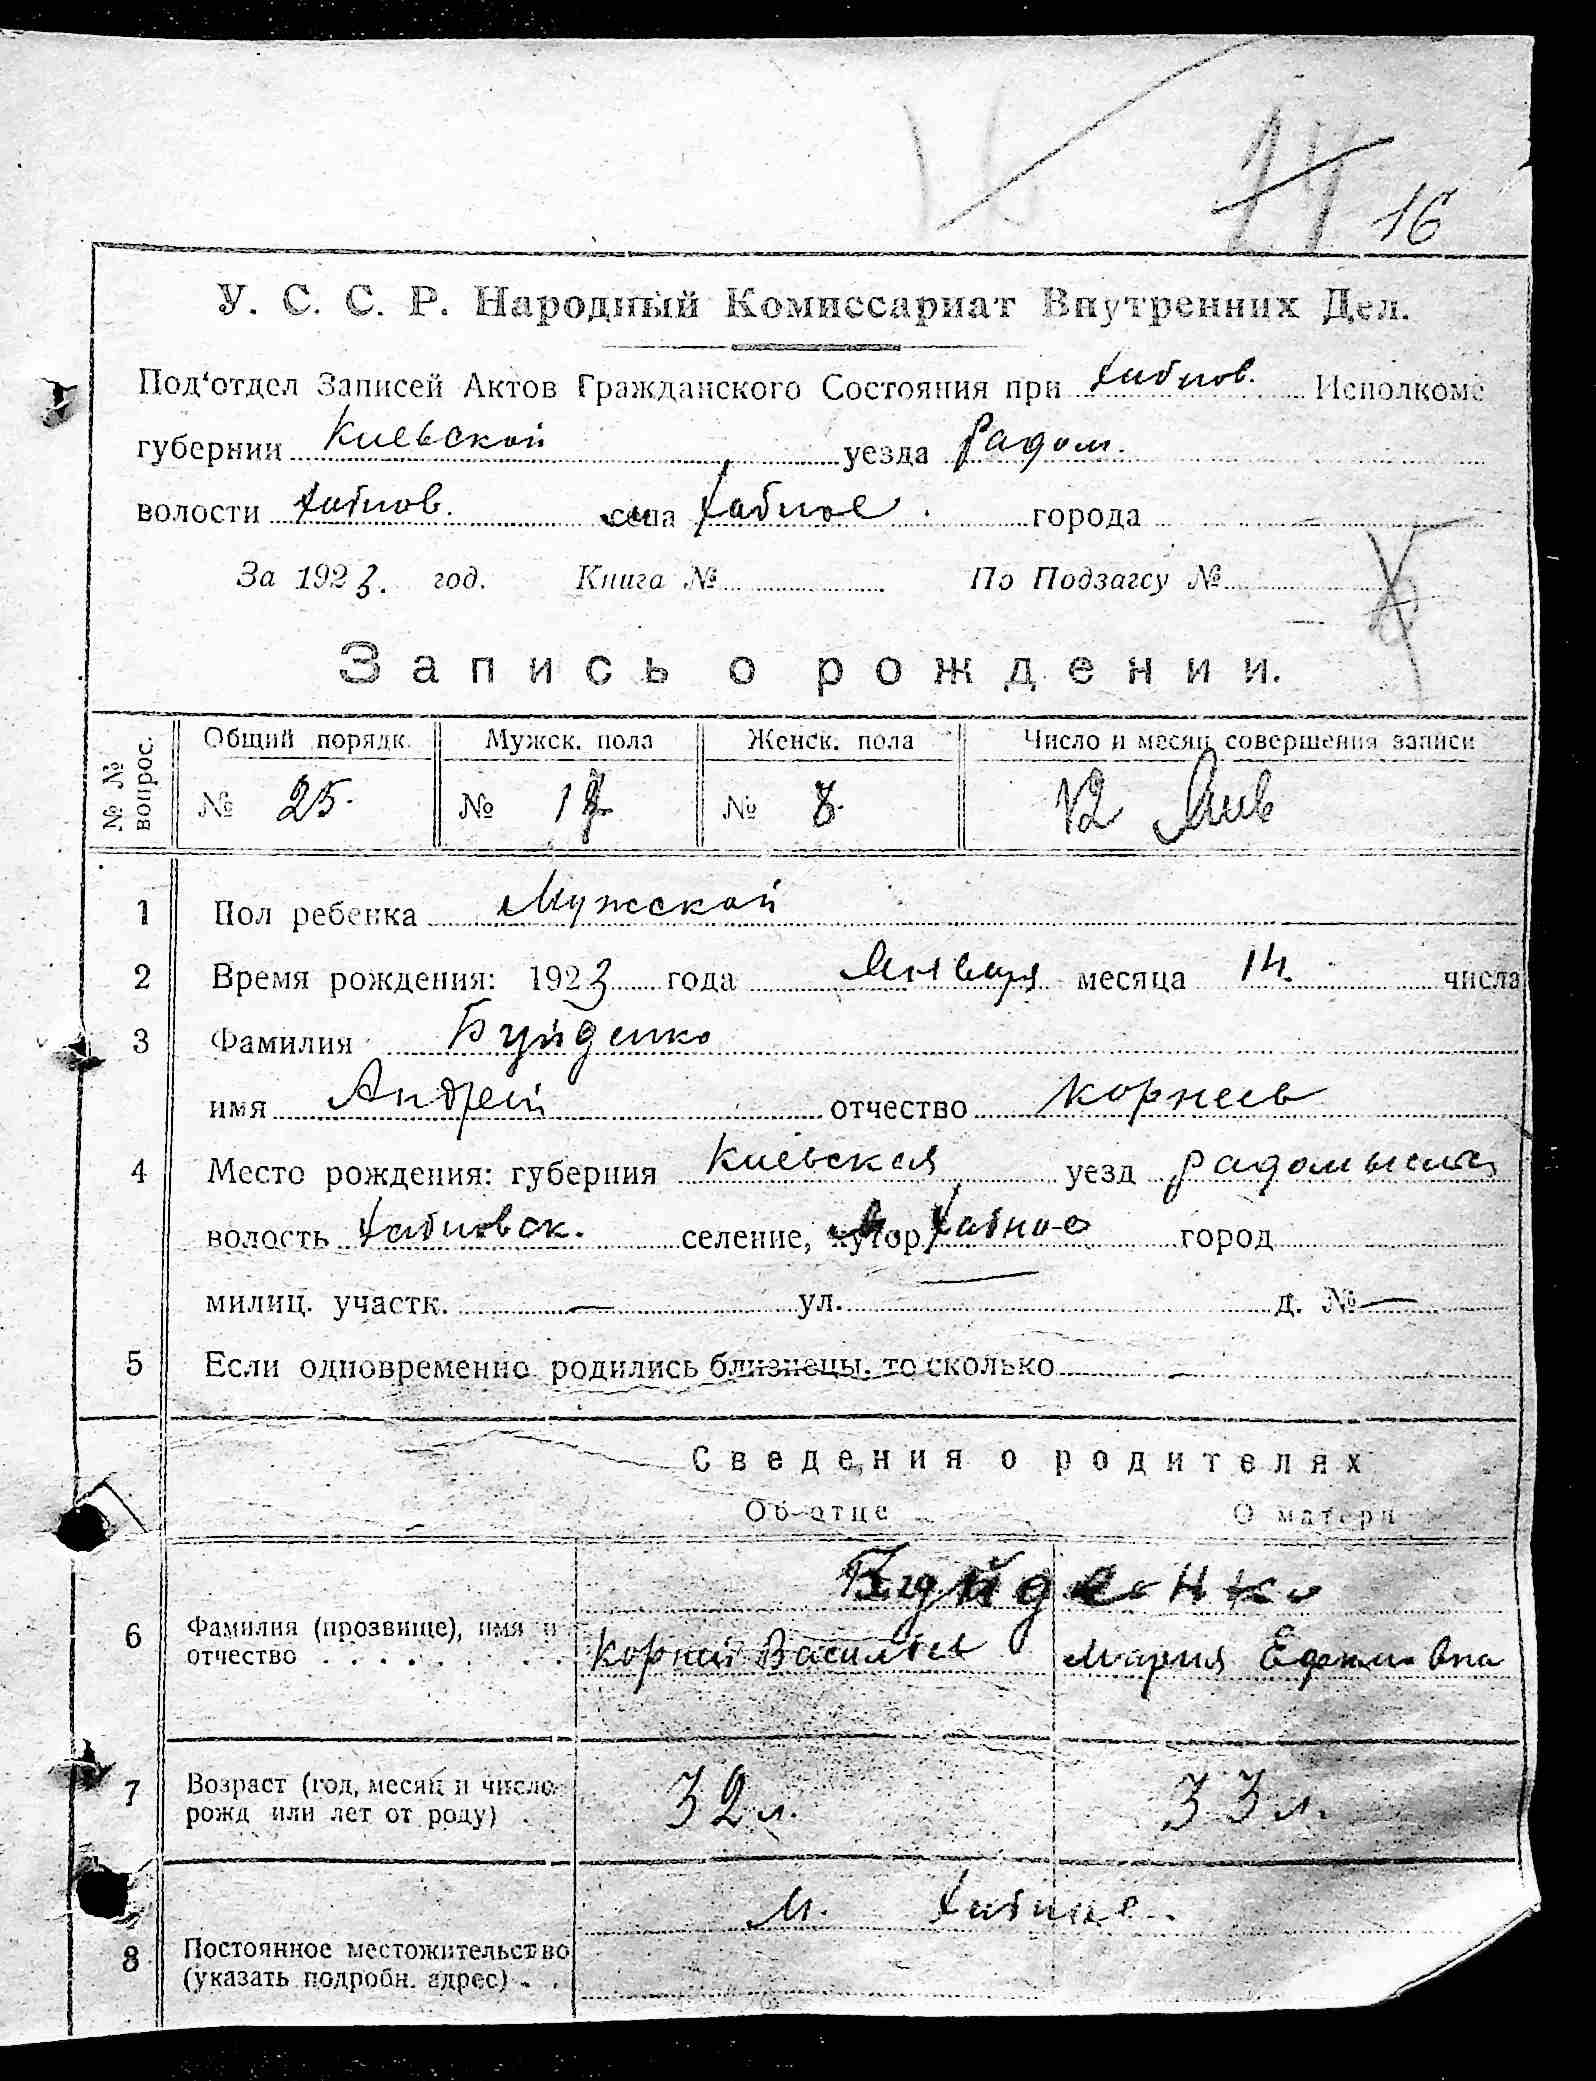 16
У. С. С. Р. Народный Комиссариат Внутренних Дел.
Под'отдел Записей Актов Гражданского Состояния при Хабнов. Исполкоме
губернии Киевской уезда Радом.
волости Хабнов. села Хабное. города
За 1923. год. Книга № По Подзагсу №
Запись о рождении.
№ № вопрос. Общий порядк. Мужск. пола Женск. пола Число и месяц совершения записи
№ 25. № 17 № 8. 12 Янв
1 Пол ребенка Мужской
2 Время рождения: 1923 года Января месяца 14. числа
3 Фамилия Буйденко
имя Андрей отчество Корнеев
4 Место рождения: губерния Киевская уезд Радомысл
волость Хабновск. селение, хутор Хабное город
милиц. участк. — ул. — д. № —
5 Если одновременно родились близнецы, то сколько —
Сведения о родителях
Об отце О матери
Буйденко
6 Фамилия (прозвище), имя и
отчество . . . . . . . . Корней Васильев Мария Ефимовна
7 Возраст (год, месяц и число
рожд или лет от роду) 32 л. 33 л.
м. Хабное.
8 Постоянное местожительство
(указать подробн. адрес) . .